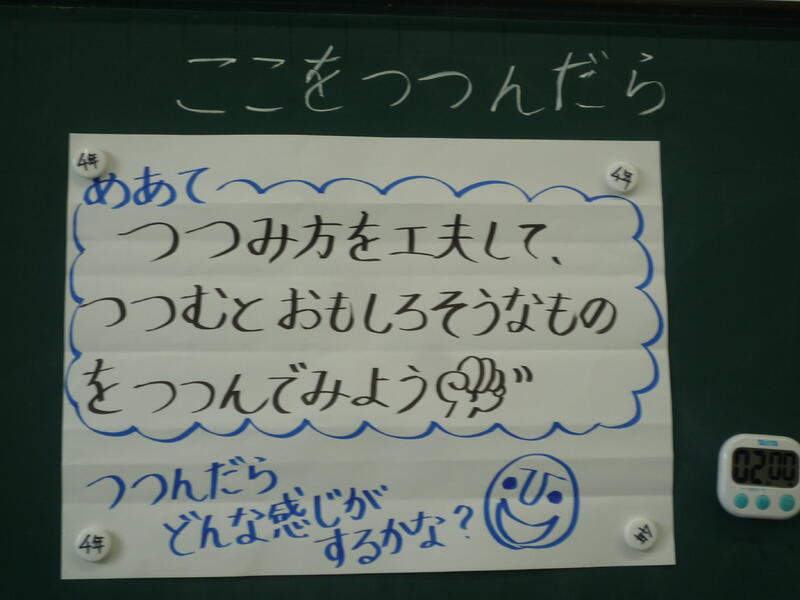 ここをつつんだら
4年
4年
めあて
つつみ方を工夫して、
つつむとおもしろそうなもの
をつつんでみよう
つつんだら
どんな感じが
するかな?
4年
4年
TANITA
02:00